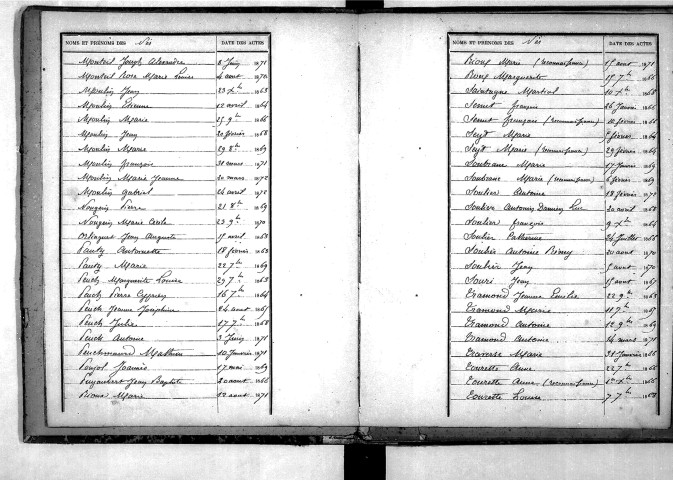 NOMS ET PRÉNOMS DES Nés DATE DES ACTES
Monteil Joseph Alexandre 8 Juin 1871
Monteil Rose Marie Louise 4 aout 1870
Moulin Jean 23 Xbre 1863
Moulin Etienne 12 avril 1864
Moulin Marie 25 9bre 1866
Moulin Jean 20 février 1868
Moulin Marie 29 8bre 1869
Moulin françois 31 mars 1871
Moulin Marie Jeanne 20 mars 1872
Moulin Gabriel 24 avril 1872
Nougein Pierre 21 8bre 1869
Nougein Marie 23 9bre 1870
Jean Auguste 15 avril 1863
Pauty Antoinette 18 février 1863
Pauty Marie 22 7bre 1869
Peuch Marguerite Louise 29 7bre 1863
Peuch Pierre 16 7bre 1864
Peuch Jeanne Joséphine 24 aout 1865
Peuch Julie 17 7bre 1868
Peuch Antoine 3 Juin 1871
Mathieu 10 Janvier 1871
Poujol 17 mai 1869
Puyaubert Jean Baptiste 20 aout 1866
Rioux Marie 12 aout 1871
NOMS ET PRÉNOMS DES Nés DATE DES ACTES
Rioux Marie (reconnaissance) 15 aout 1871
Rioux Marguerite 15 7bre 1866
Saintagne Martial 10 Xbre 1868
Serret françois 26 Janvier 1866
Serret françoise (reconnaissance) 10 février 1866
Seyt Marie 7 février 1864
Seyt Marie (reconnaissance) 29 février 1864
Soubrane Marie 17 Janvier 1869
Soubrane Marie (reconnaissance) 6 février 1869
Soulier Antoine 18 février 1872
Soulier Antoine Damien Luc 20 avril 1868
Soulier françois 9 Xbre 1864
Soulier Catherine 24 Juillet 1866
Antoine Rémy 20 aout 1870
Soulier Jean 5 avril 1870
Souri Jean 15 avril 1867
Tramond Jeanne Emilie 22 9bre 1863
Tramond Marie 11 7bre 1867
Tramond Antoine 12 9bre 1869
Tramond Antoine 24 mars 1871
Traverse Marie 31 Janvier 1866
Tourette Anne 22 7bre 1866
Tourette Anne (reconnaissance) 1er Xbre 1866
Tourette Louise 7 7bre 1868